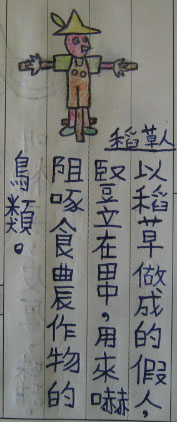 稻草人
以稻草做成的假人，
豎立在田中，用來嚇
阻啄食農作物的
鳥類。